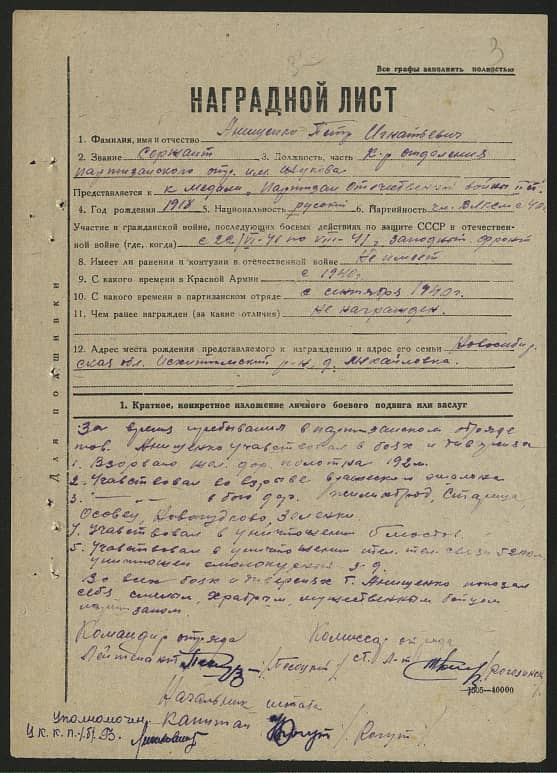 3
Все графы заполнить полностью
НАГРАДНОЙ ЛИСТ
1. Фамилия, имя и отчество Анищенко Петр Игнатьевич
2. Звание Сержант 3. Должность, часть К-р отделения
партизанского отр. им. Жукова
Представляется к к медали "Партизан Отечественной войны"
4. Год рождения 1918 5. Национальность русский 6. Партийность чл. ВЛКСМ с 40
Участие в гражданской войне, последующих боевых действиях по защите СССР и отечествен-
ной войне (где, когда) с 22/VI-41 по VIII-41 г. Западный фронт
8. Имеет ли ранения и контузии в отечественной войне Не имеет
9. С какого времени в Красной Армии с 1940г.
10. С какого времени в партизанском отряде с сентября 1940г.
11. Чем ранее награжден (за какие отличия) Не награжден.
12. Адрес места рождения представляемого к награждению и адрес его семьи Новосибир
ская обл. Искитимский р-н, д. Михайловка.
Для подшивки
1. Краткое, конкретное изложение личного боевого подвига или заслуг
За время пребывания в партизанском отряде
тов. Анищенко учавствовал в боях и диверсиях
1. Взорвано жел. дор. полотна 192 м.
2. Учавствовал во взрыве
3. —"— —"— в бою дер. Старица,
Осовец, Зеленки
4. Учавствовал в уничтожении 6 мостов.
5. Учавствовал в уничтожении тел. тел. связи 5 клм.
уничтожен
Во всех боях и диверсиях т. Анищенко показал
себя смелым, храбрым, мужественным бойцем
партизаном.
Командир отряда Комиссар отряда
Лейтенант /Песоцкий/ ст. Л-т
1505—40000
Начальник штаба
Капитан /Когут/
уполномочен.
Ц К К П /б/ Б.